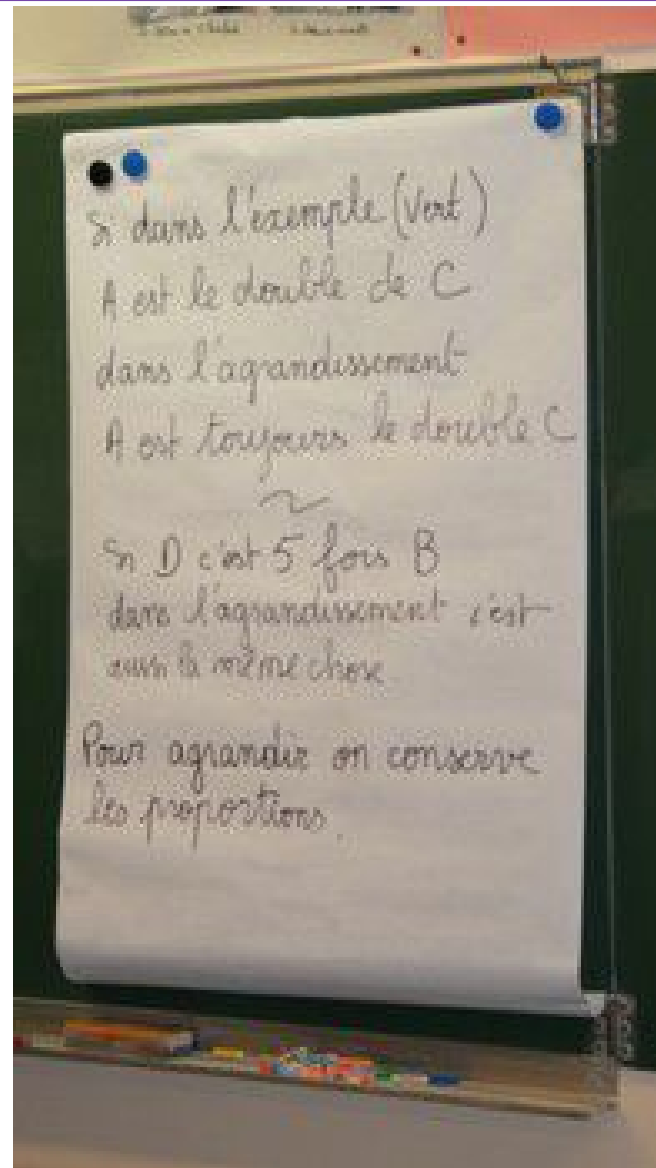 Si dans l'exemple (Vert)
A est le double de C
dans l'agrandissement
A est toujours le double C
Si D c'est 5 fois B
dans l'agrandissement c'est
aussi la même chose
Pour agrandir on conserve
les proportions.